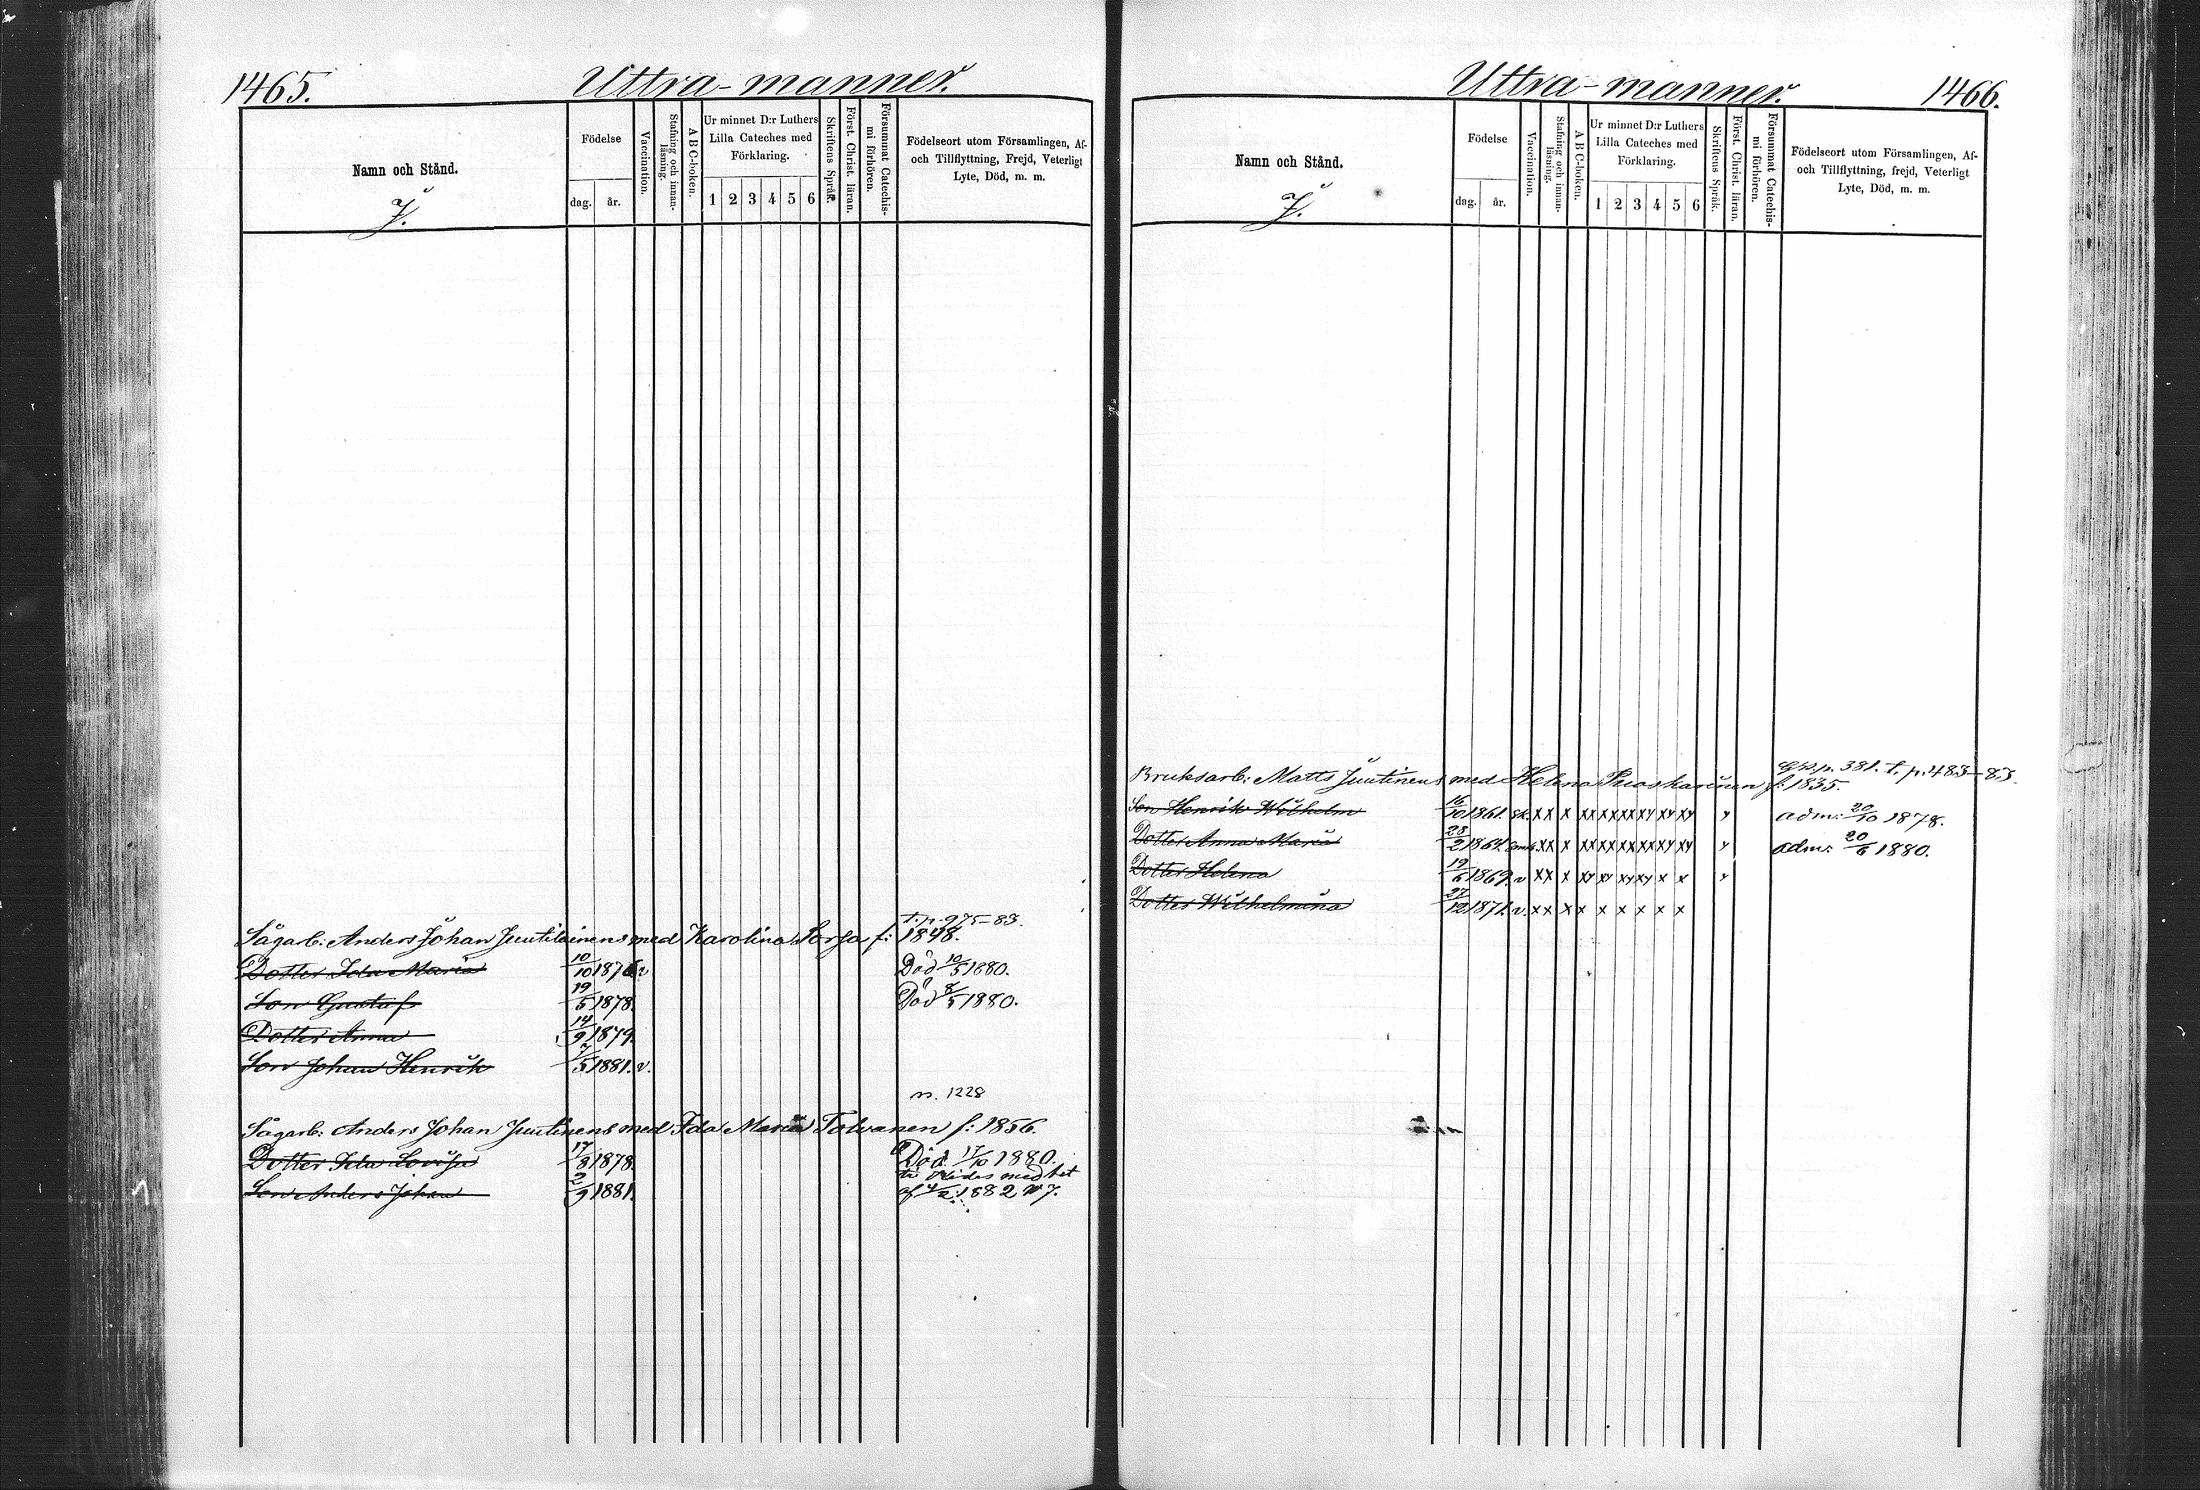 1465. Uttra-manner.
Namn och Stånd.
J.
Födelse
dag. år.
Vaccination.
Stafning och innan-
läsning.
A B C-boken.
Ur minnet D:r Luthers
Lilla Cateches med
Förklaring.
1 2 3 4 5 6
Skriftens Språk.
Först. Christ. läran.
Försummat Catechis-
mi förhören.
Födelseort utom Församlingen, Af-
och Tillflyttning, Frejd, Veterligt
Lyte, Död, m. m.
t. p. 975-83.
Sågarb: Anders Johan Juutilainens med Karolina Sorsa f: 1848.
Dotter Ida Maria 10/10 1876 v. Död 10/5 1880.
Son Gustaf 19/5 1878. Död 8/5 1880.
Dotter Anna 14/9 1879.
Son Johan Henrik 7/5 1881. v.
n. 1228
Sågarb: Anders Johan Juutinens med Ida Maria Tolvanen f: 1856.
Dotter Ida Lovisa 17/8 1878. Död 17/10 1880.
till Kides med bet
Son Anders Johan 2/9 1881. af 4/2 1882 N 7.
Uttra-manner. 1466.
Namn och Stånd.
J.
Födelse
dag. år.
Vaccination.
Stafning och innan-
läsning.
A B C-boken.
Ur minnet D:r Luthers
Lilla Cateches med
Förklaring.
1 2 3 4 5 6
Skriftens Språk.
Först. Christ. läran.
Försummat Catechis-
mi förhören.
Födelseort utom Församlingen, Af-
och Tillflyttning, frejd, Veterligt
Lyte, Död, m. m.
p. 381. t. p. 483-83.
Bruksarb: Matts Juutinens med Helena Puoskarinen f: 1835.
Son Henrik Wilhelm 16/10 1861. xx x xx xx xx xy xy xy y adm: 20/10 1878.
Dotter Anna Maria 28/2 1864. xx x xx xx xx xx xy xy y adm: 20/6 1880.
Dotter Helena 19/6 1867. v xx x xy xy xy xy x x y
Dotter Wilhelmina 27/12 1871. v. xx x x x x x x x